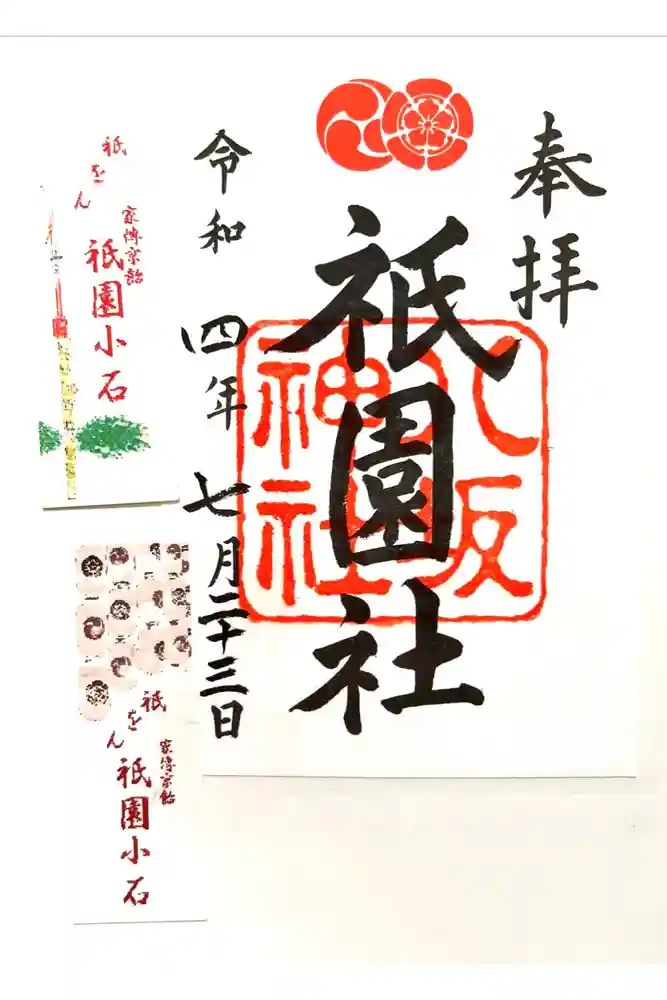 奉拝
祇園社
八坂
神社
令和四年七月二十三日
祇をん
家傳京飴
祇園小石
祇をん
家傳京飴
祇園小石